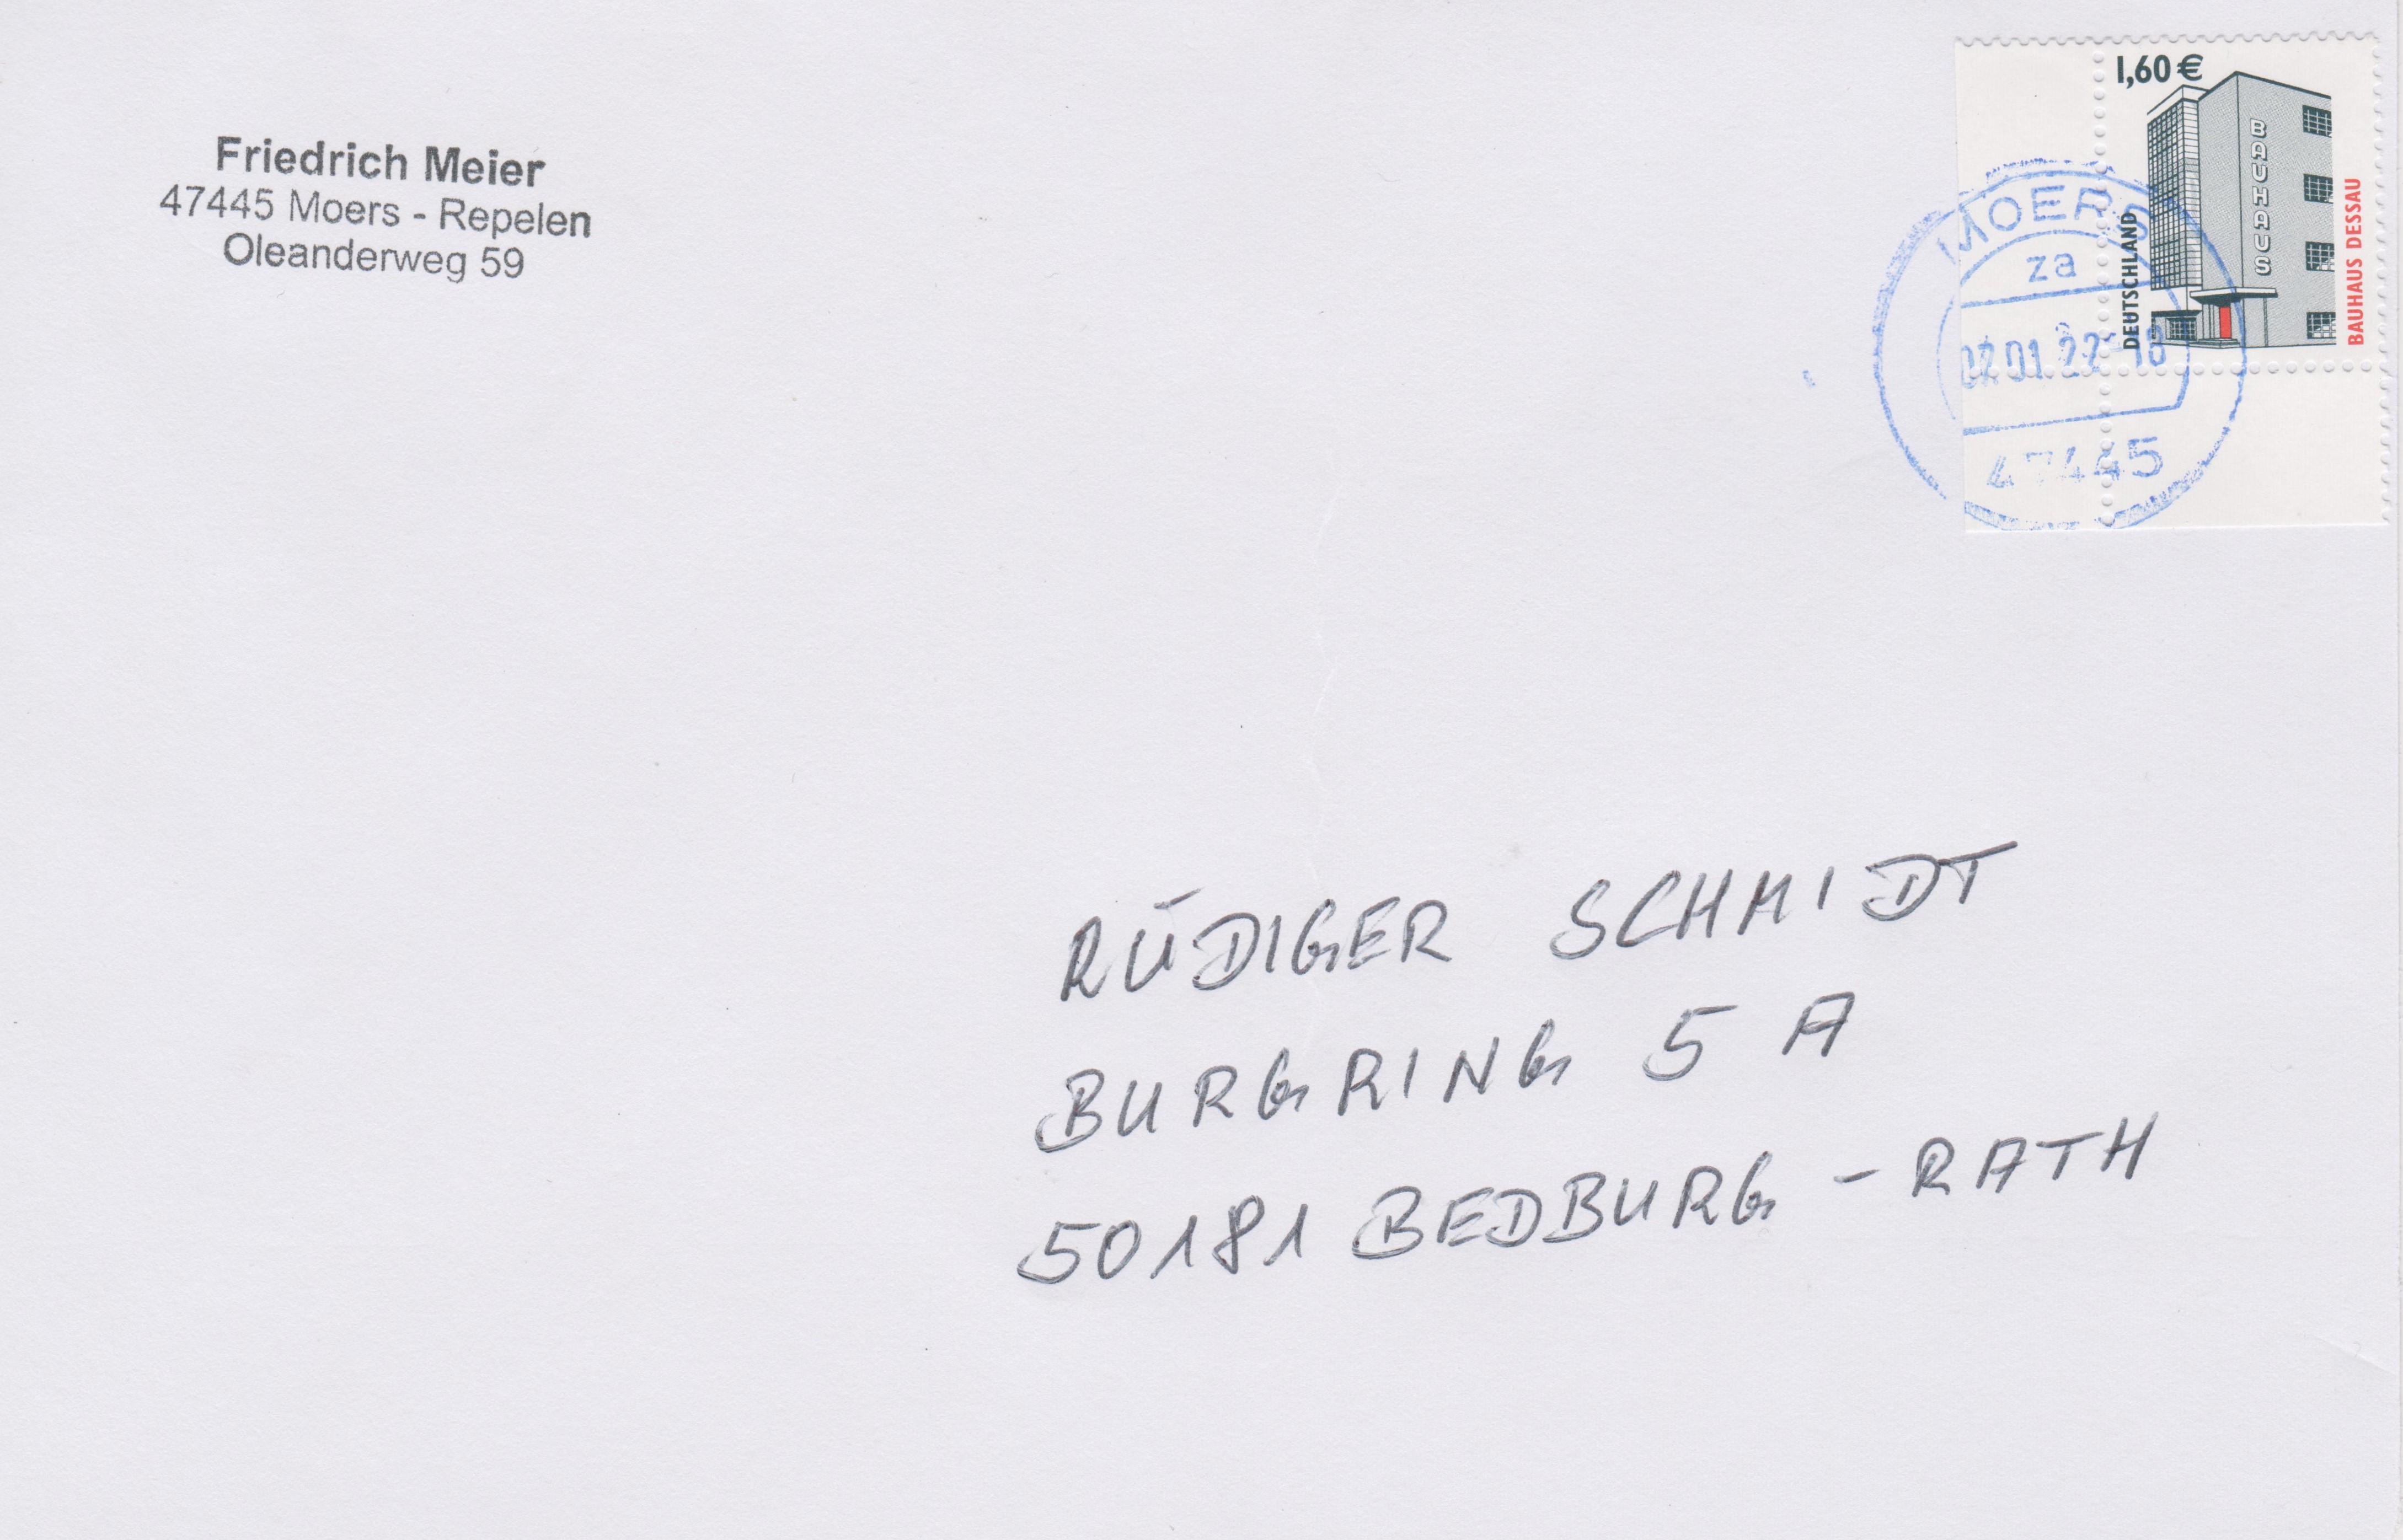 Friedrich Meier
47445 Moers - Repelen
Oleanderweg 59
1,60 €
BAUHAUS
DEUTSCHLAND
BAUHAUS DESSAU
MOERS
za
02.01.22-18
47445
RÜDIGER SCHMIDT
BURGRING 5 A
50181 BEDBURG - RATH